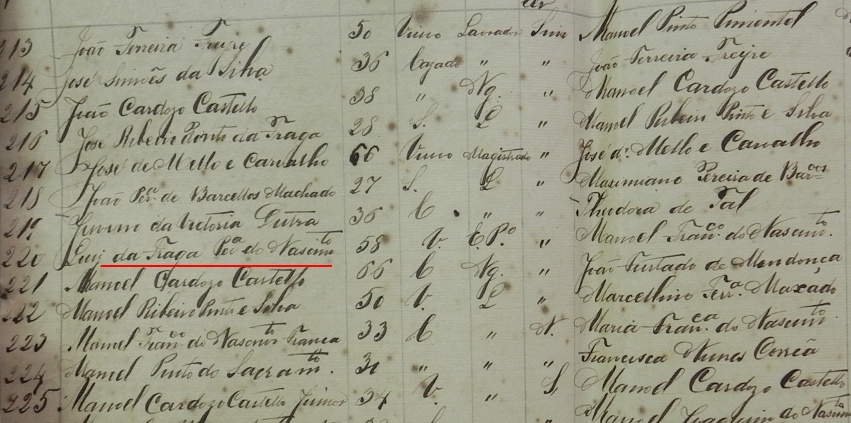 213 João Ferreira Freire 50 Viuvo Lavrador Sim Manoel Pinto Pimentel
214 José Simões da Silva 36 Cazado " " João Ferreira Freyre
215 João Cardozo Castello 38 " Ng. " Manoel Cardozo Castello
216 José Ribeiro Pinto da Fraga 28 S. L " Manoel Ribeiro Pinto e Silva
217 José de Mello e Carvalho 66 Viuvo Magistrado " José d. Mello e Carvalho
218 João Per.ª de Barcellos Machado 27 S. L " Maximiano Pereira de Bar.cos
219 Juvino da Victoria Dutra 36 C " " Thudora de Tal
220 Luiz da Fraga Per.ª do Nascim.to 58 V. E.P.º " Manoel Fran.co do Nascim.to
221 Manoel Cardozo Castello 66 C Ng. " João Furtado de Mendonça
222 Manoel Ribeiro Pinto e Silva 50 V. L " Marcellino Ferr.ª Maxado
223 Manoel Fran.co do Nascim.to Franca 33 C " N. Maria Fran.ca do Nascim.to
224 Manoel Pinto do Sacram.to 31 " " Francisca Nunes Corrêa
225 Manoel Cardozo Castello Junior 34 V. " S. Manoel Cardozo Castello
Manoel Joaquim do Nascim.to